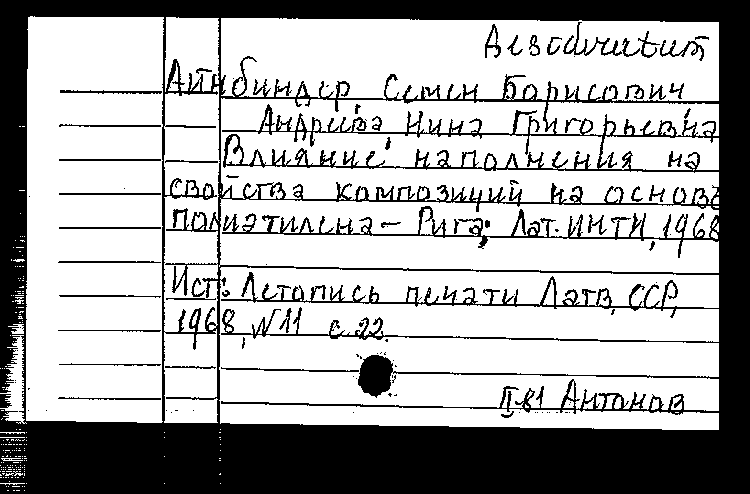 Айнбиндер, Семен Борисович
Андреева, Нина Григорьевна
Влияние наполнения на
свойства композиций на основе
полиэтилена – Рига; Лат. ИНТИ, 1968
Ист: Летопись печати Латв. ССР,
1968, N 11 с. 22.
II-в1 Антонов